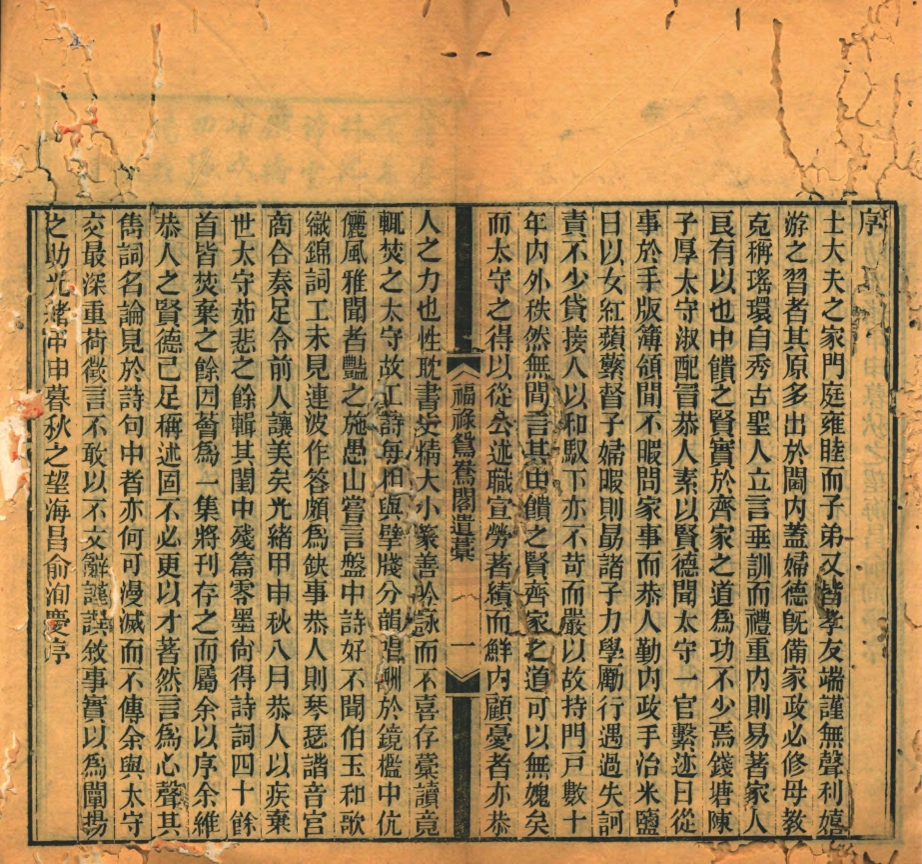 序
士大夫之家門庭雍睦而子弟又皆孝友端謹無聲利嬉
游之習者其原多出於閫內蓋婦德旣備家政必修母教
克稱瑤環自秀古聖人立言垂訓而禮重內則易著家人
良有以也中饋之賢實於齊家之道為功不少焉錢塘陳
子厚太守淑配恭人素以賢德聞太守一官繫迹日從
事於手版簿領間不暇問家事而恭人勤內政手治米鹽
日以女紅蘋蘩督子婦暇則勗諸子力學勵行遇過失訶
責不少貸接人以和馭下亦不苛而嚴以故持門戶數十
年內外秩然無間言其中饋之賢齊家之道可以無媿矣
而太守之得以從公述職宣勞著績而鮮內顧憂者亦恭
福祿鴛鴦閣遺稾
一
人之力也性耽書史精大小篆善吟詠而不喜存稾讀竟
輒焚之太守故工詩每相與擘牋分韻唱酬於鏡檻中伉
儷風雅聞者豔之施愚山嘗言盤中詩好不聞伯玉和歌
織錦詞工未見連波作答頗為缺事恭人則琴瑟諧音宮
商合奏足令前人讓美矣光緒甲申秋八月恭人以疾棄
世太守茹悲之餘輯其閨中殘篇零墨尙得詩詞四十餘
首皆焚棄之餘因薈為一集將刊存之而屬余以序余維
恭人之賢德已足稱述固不必更以才著然言為心聲其
雋詞名論見於詩句中者亦何可漫滅而不傳余與太守
交最深重荷徵言不敢以不文辭謹譔敘事實以為闡揚
之助光緒甲申暮秋之望海昌俞洵慶序